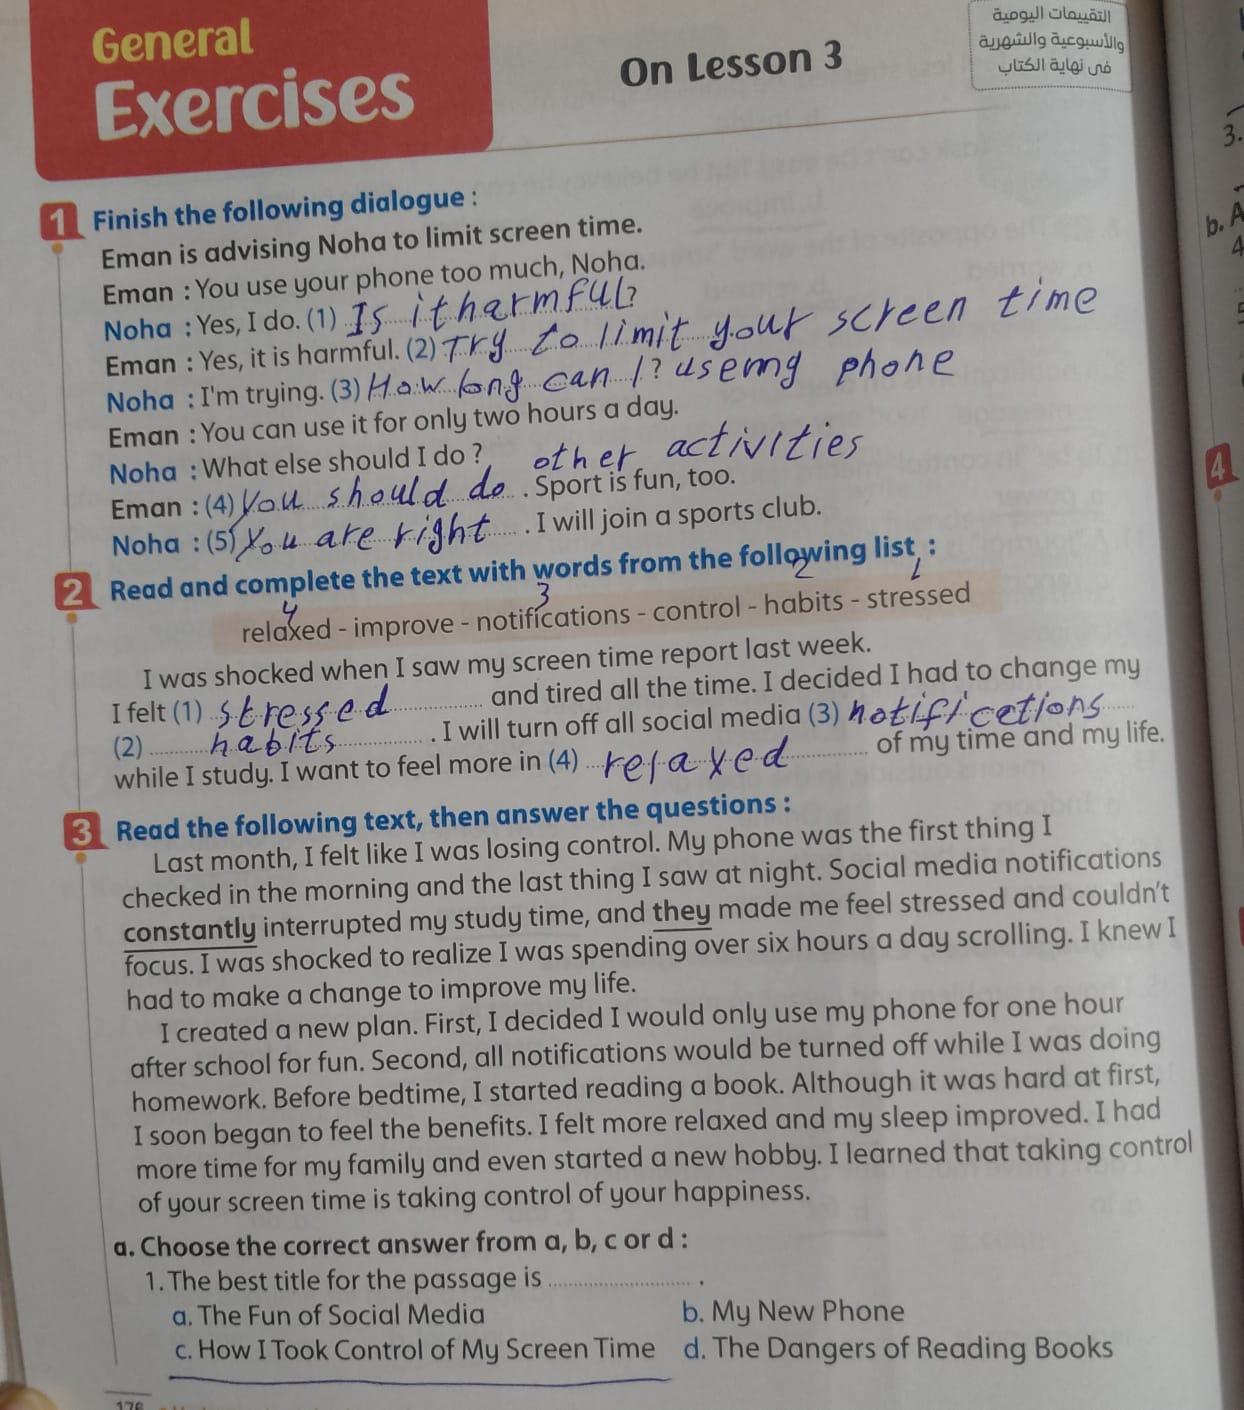 General
Exercises
On Lesson 3
التقييمات اليومية
والأسبوعية والشهرية
فى نهاية الكتاب
1 Finish the following dialogue :
Eman is advising Noha to limit screen time.
Eman : You use your phone too much, Noha.
Noha : Yes, I do. (1) Is it harmful?
Eman : Yes, it is harmful. (2) Try to limit your screen time
Noha : I'm trying. (3) How long can I? useing phone
Eman : You can use it for only two hours a day.
Noha : What else should I do ?
Eman : (4) You should do other activities . Sport is fun, too.
Noha : (5) You are right . I will join a sports club.
2 Read and complete the text with words from the following list :
4 3 2 1
relaxed - improve - notifications - control - habits - stressed
I was shocked when I saw my screen time report last week.
I felt (1) stressed and tired all the time. I decided I had to change my
(2) habits . I will turn off all social media (3) notificetions
while I study. I want to feel more in (4) relaxed of my time and my life.
3 Read the following text, then answer the questions :
Last month, I felt like I was losing control. My phone was the first thing I
checked in the morning and the last thing I saw at night. Social media notifications
constantly interrupted my study time, and they made me feel stressed and couldn't
focus. I was shocked to realize I was spending over six hours a day scrolling. I knew I
had to make a change to improve my life.
I created a new plan. First, I decided I would only use my phone for one hour
after school for fun. Second, all notifications would be turned off while I was doing
homework. Before bedtime, I started reading a book. Although it was hard at first,
I soon began to feel the benefits. I felt more relaxed and my sleep improved. I had
more time for my family and even started a new hobby. I learned that taking control
of your screen time is taking control of your happiness.
a. Choose the correct answer from a, b, c or d :
1. The best title for the passage is .......................... .
a. The Fun of Social Media
b. My New Phone
c. How I Took Control of My Screen Time
d. The Dangers of Reading Books
176
3.
b. A
4
4